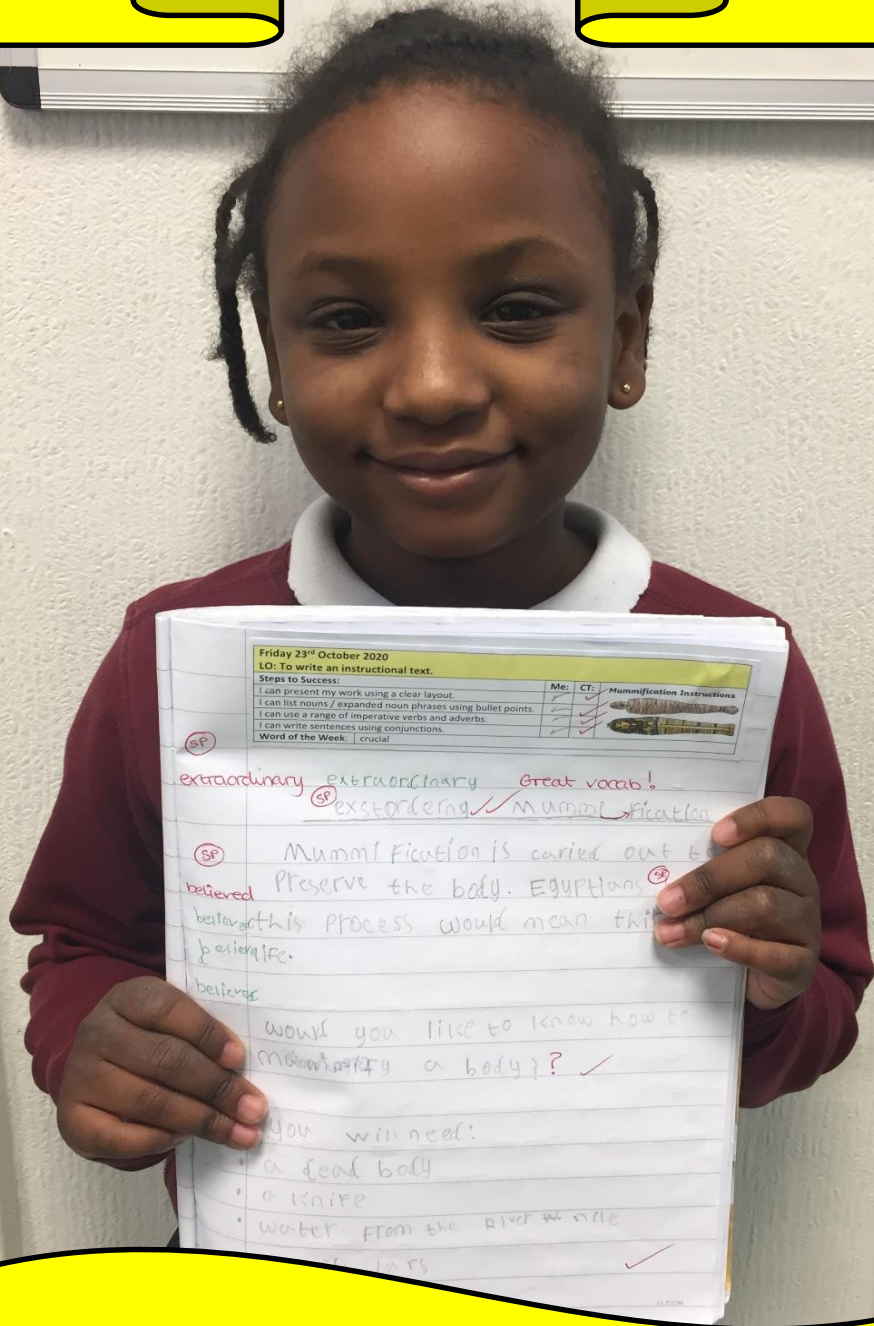 Friday 23rd October 2020
LO: To write an instructional text.
Steps to Success:
Me: CT:
Mummification Instructions
I can present my work using a clear layout.
I can list nouns / expanded noun phrases using bullet points.
I can use a range of imperative verbs and adverbs.
I can write sentences using conjunctions.
Word of the Week: crucial
SP
extraordinary extraordinary Great vocab!
SP exstorderng Mummi fication
SP Mummification is caried out
believed Preserve the body. Egyptians SP
believed this process would mean
believ life.
believed
would you like to know how to
a body? ?
you will need:
• a dead body
• a knife
• water from the River nile